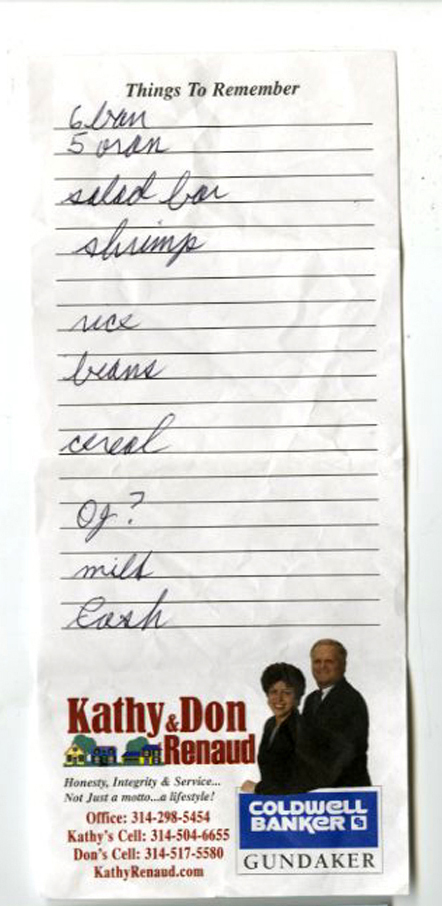 Things To Remember
6 ban
5 oran
salad bar
shrimp
rice
beans
cereal
OJ?
milk
Cash
Kathy & Don
Renaud
Honesty, Integrity & Service...
Not Just a motto...a lifestyle!
Office: 314-298-5454
Kathy's Cell: 314-504-6655
Don's Cell: 314-517-5580
KathyRenaud.com
COLDWELL
BANKER
GUNDAKER